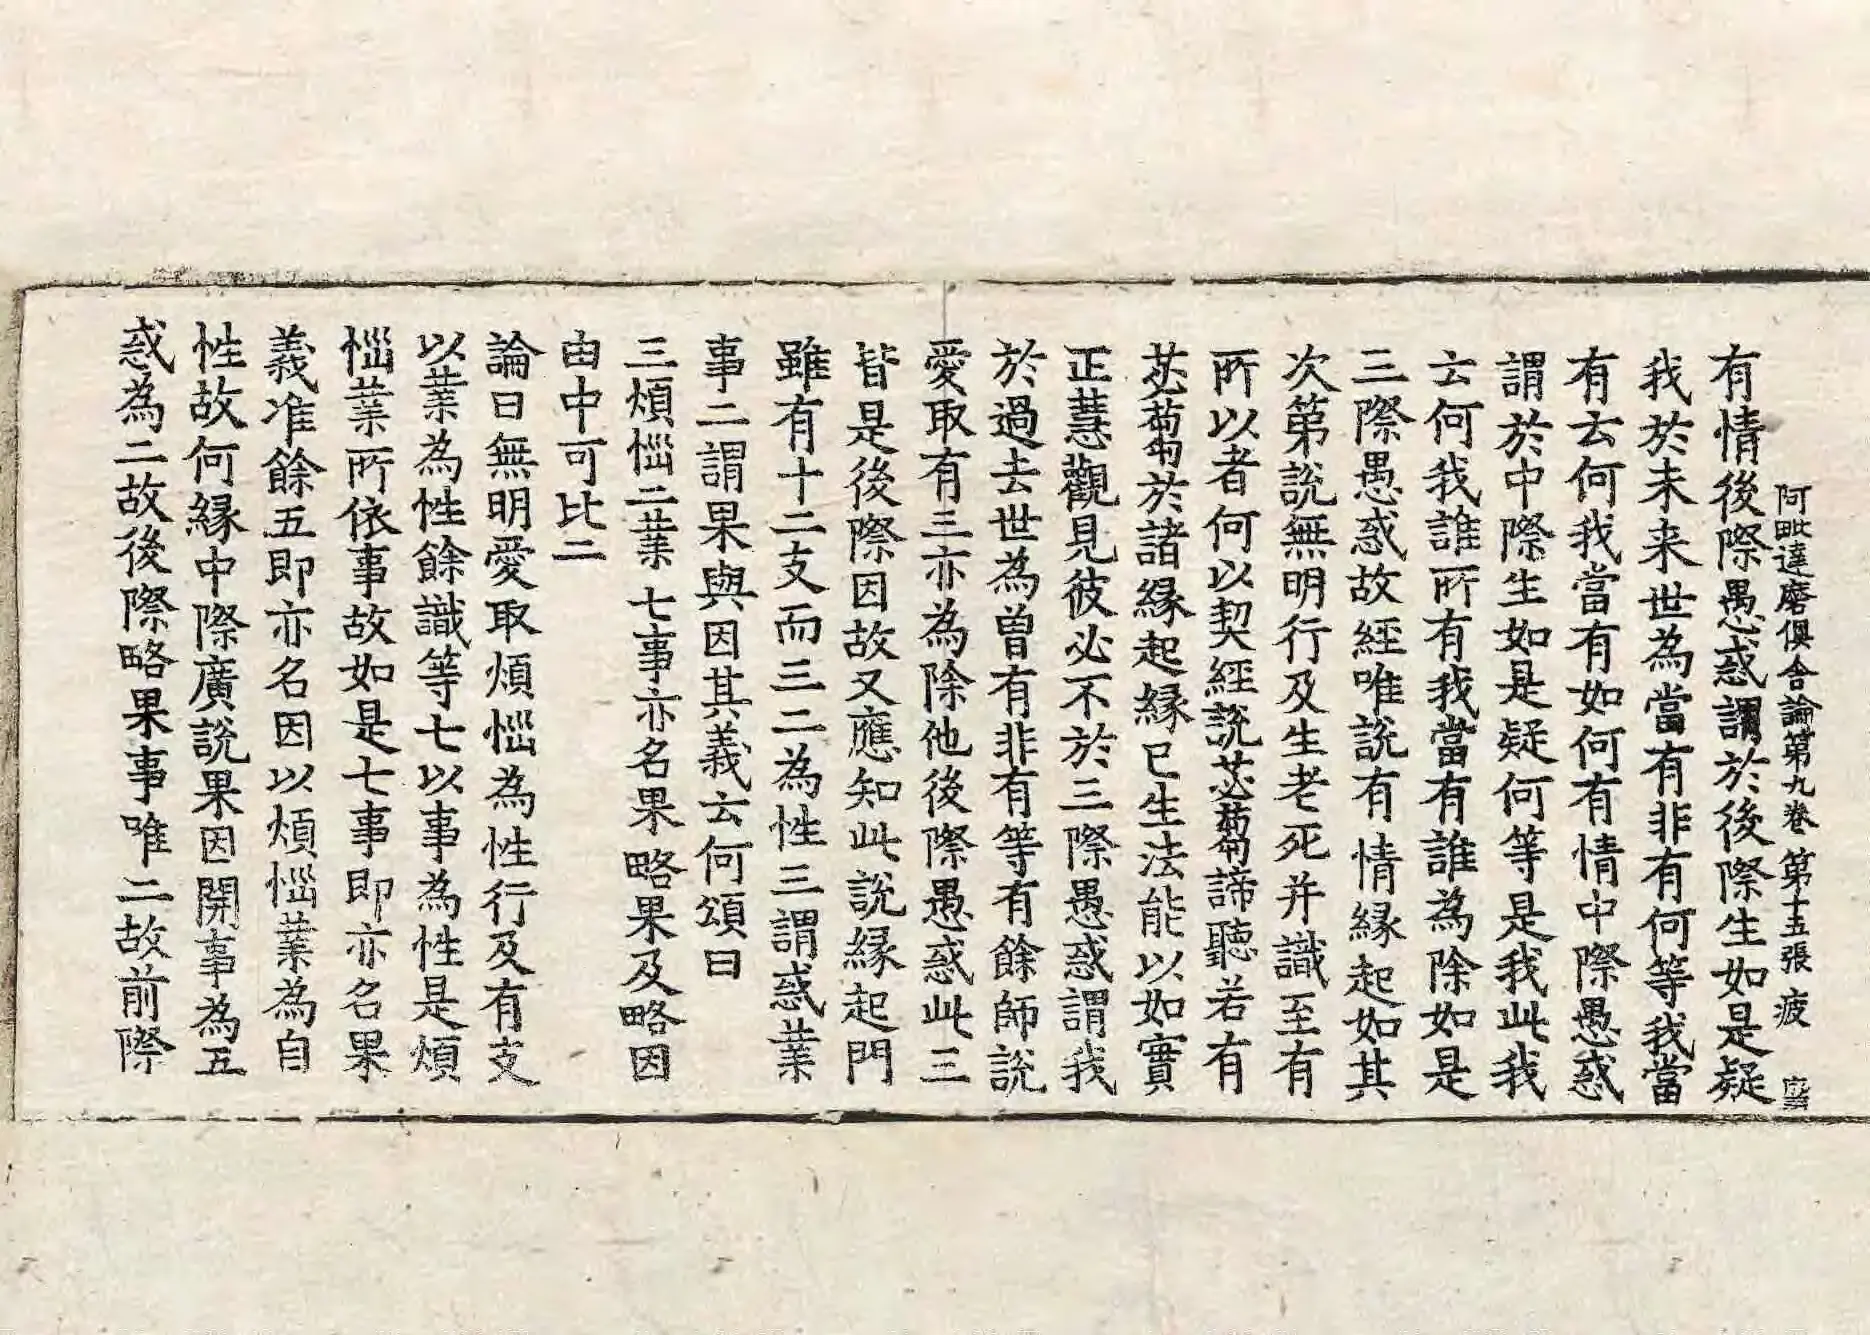 阿毗達磨俱舍論第九卷 第十五張 疲
有情後際愚惑謂於後際生如是疑
我於未来世為當有非有何等我當
有云何我當有如何有情中際愚惑
謂於中際生如是疑何等是我此我
云何我誰所有我當有誰為除如是
三際愚惑故經唯說有情縁起如其
次第說無明行及生老死并識至有
所以者何以契經說苾蒭諦聽若有
苾蒭於諸縁起縁已生法能以如實
正慧觀見彼必不於三際愚惑謂我
於過去世為曽有非有等有餘師說
愛取有三亦為除他後際愚惑此三
皆是後際因故又應知此說縁起門
雖有十二支而三二為性三謂惑業
事二謂果與因其義云何頌曰
三煩惱二業 七事亦名果 略果及略因
由中可比二
論曰無明愛取煩惱為性行及有支
以業為性餘識等七以事為性是煩
惱業所依事故如是七事即亦名果
義准餘五即亦名因以煩惱業為自
性故何縁中際廣說果因開事為五
惑為二故後際略果事唯二故前際